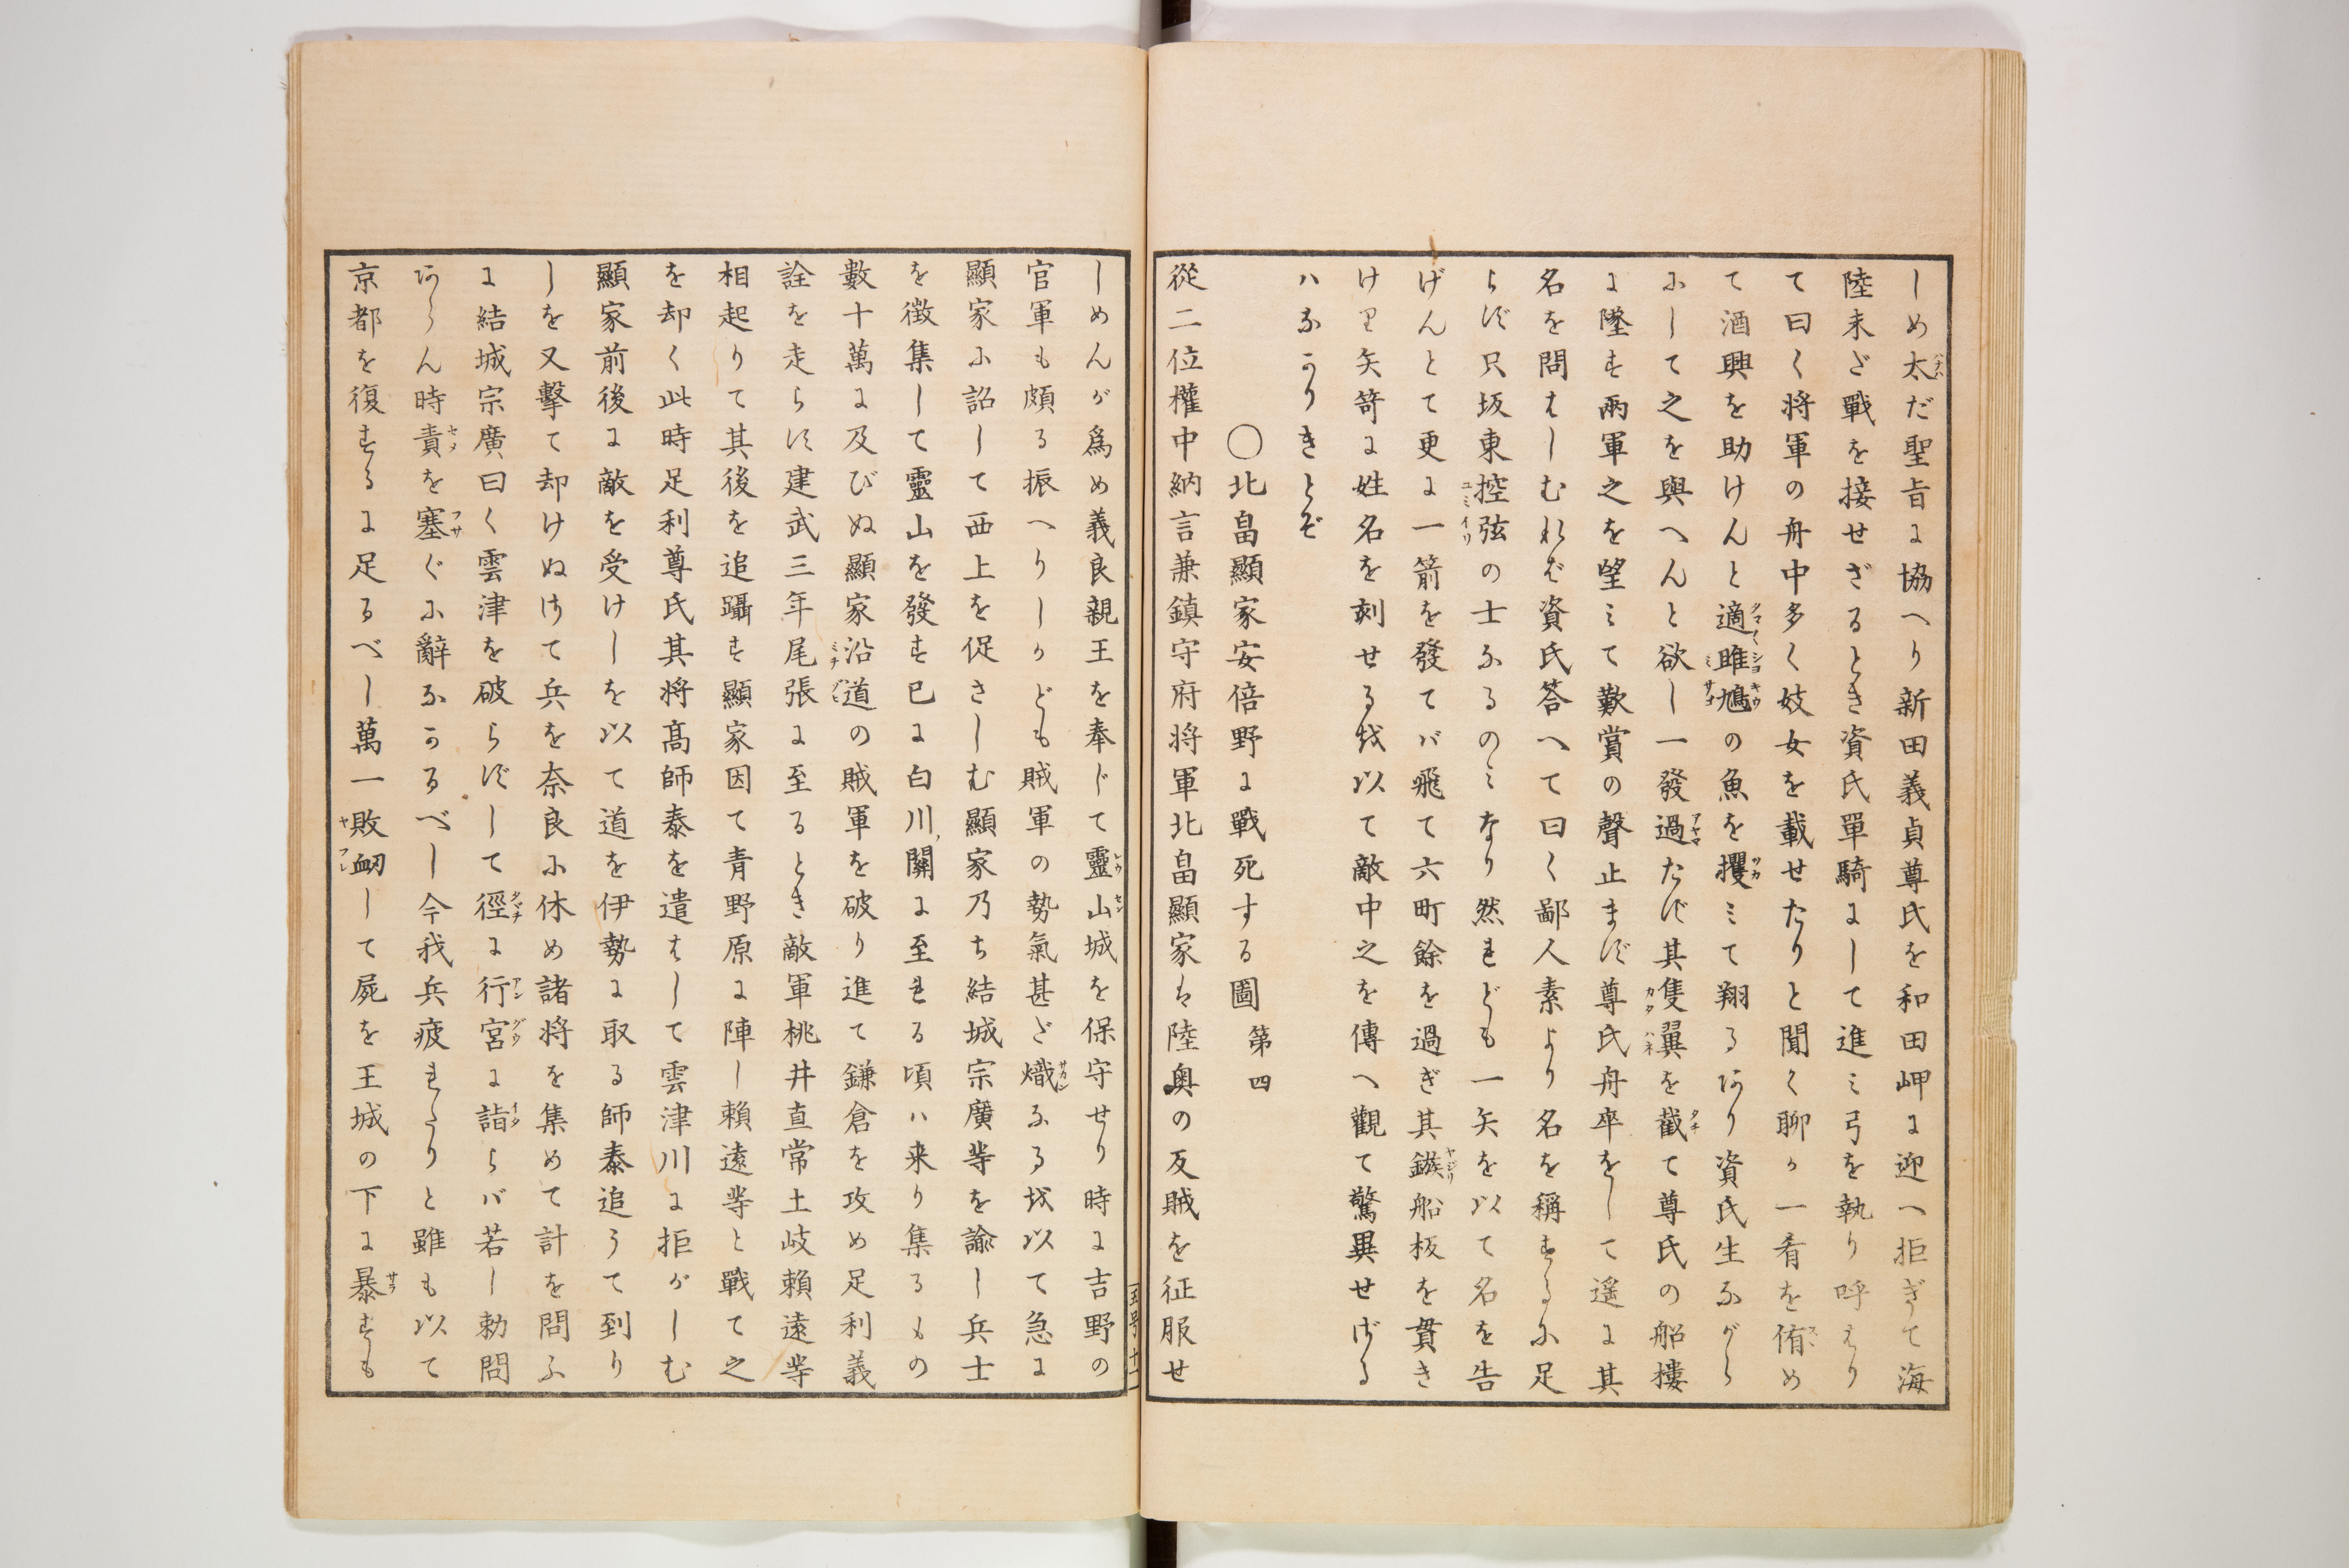 しめ太だ聖旨に協へり新田義貞尊氏を和田岬に迎へ拒ぎて海
陸未だ戰を接せざるとき資氏單騎にして進み弓を執り呼はり
て曰く将軍の舟中多く妓女を載せたりと聞く聊か一肴を侑め
て酒興を助けんと適雎鳩の魚を攫みて翔るあり資氏生ながら
にして之を與へんと欲し一發過たず其隻翼を截て尊氏の船樓
に墜す兩軍之を望みて歎賞の聲止まず尊氏舟卒をして遥に其
名を問はしむれば資氏答へて曰く鄙人素より名を稱するに足
らず只坂東控弦の士なるのみなり然れども一矢を以て名を告
げんとて更に一箭を發てバ飛て六町餘を過ぎ其鏃船板を貫き
けり矢笴に姓名を刻せるを以て敵中之を傳へ觀て驚異せざる
ハなかりきとぞ
〇北畠顯家安倍野に戰死する圖 第四
從二位權中納言兼鎮守府将軍北畠顯家は陸奥の反賊を征服せ
しめんが爲め義良親王を奉じて靈山城を保守せり時に吉野の
官軍も頗る振へりしかども賊軍の勢氣甚だ熾なるを以て急に
顯家に詔して西上を促さしむ顯家乃ち結城宗廣䓁を諭し兵士
を徴集して靈山を發す已に白川關に至れる頃ハ来り集るもの
數十萬に及びぬ顯家沿道の賊軍を破り進て鎌倉を攻め足利義
詮を走らす建武三年尾張に至るとき敵軍桃井直常土岐賴遠䓁
相起りて其後を追躡す顯家因て青野原に陣し賴遠䓁と戰て之
を却く此時足利尊氏其将高師泰を遣はして雲津川に拒がしむ
顯家前後に敵を受けしを以て道を伊勢に取る師泰追うて到り
しを又擊て却けぬ扨て兵を奈良に休め諸将を集めて計を問ふ
に結城宗廣曰く雲津を破らずして徑に行宮に詣らバ若し勅問
あらん時責を塞ぐに辭なかるべし今我兵疲れたりと雖も以て
京都を復するに足るべし萬一敗衂して屍を王城の下に暴すも
五号 十二